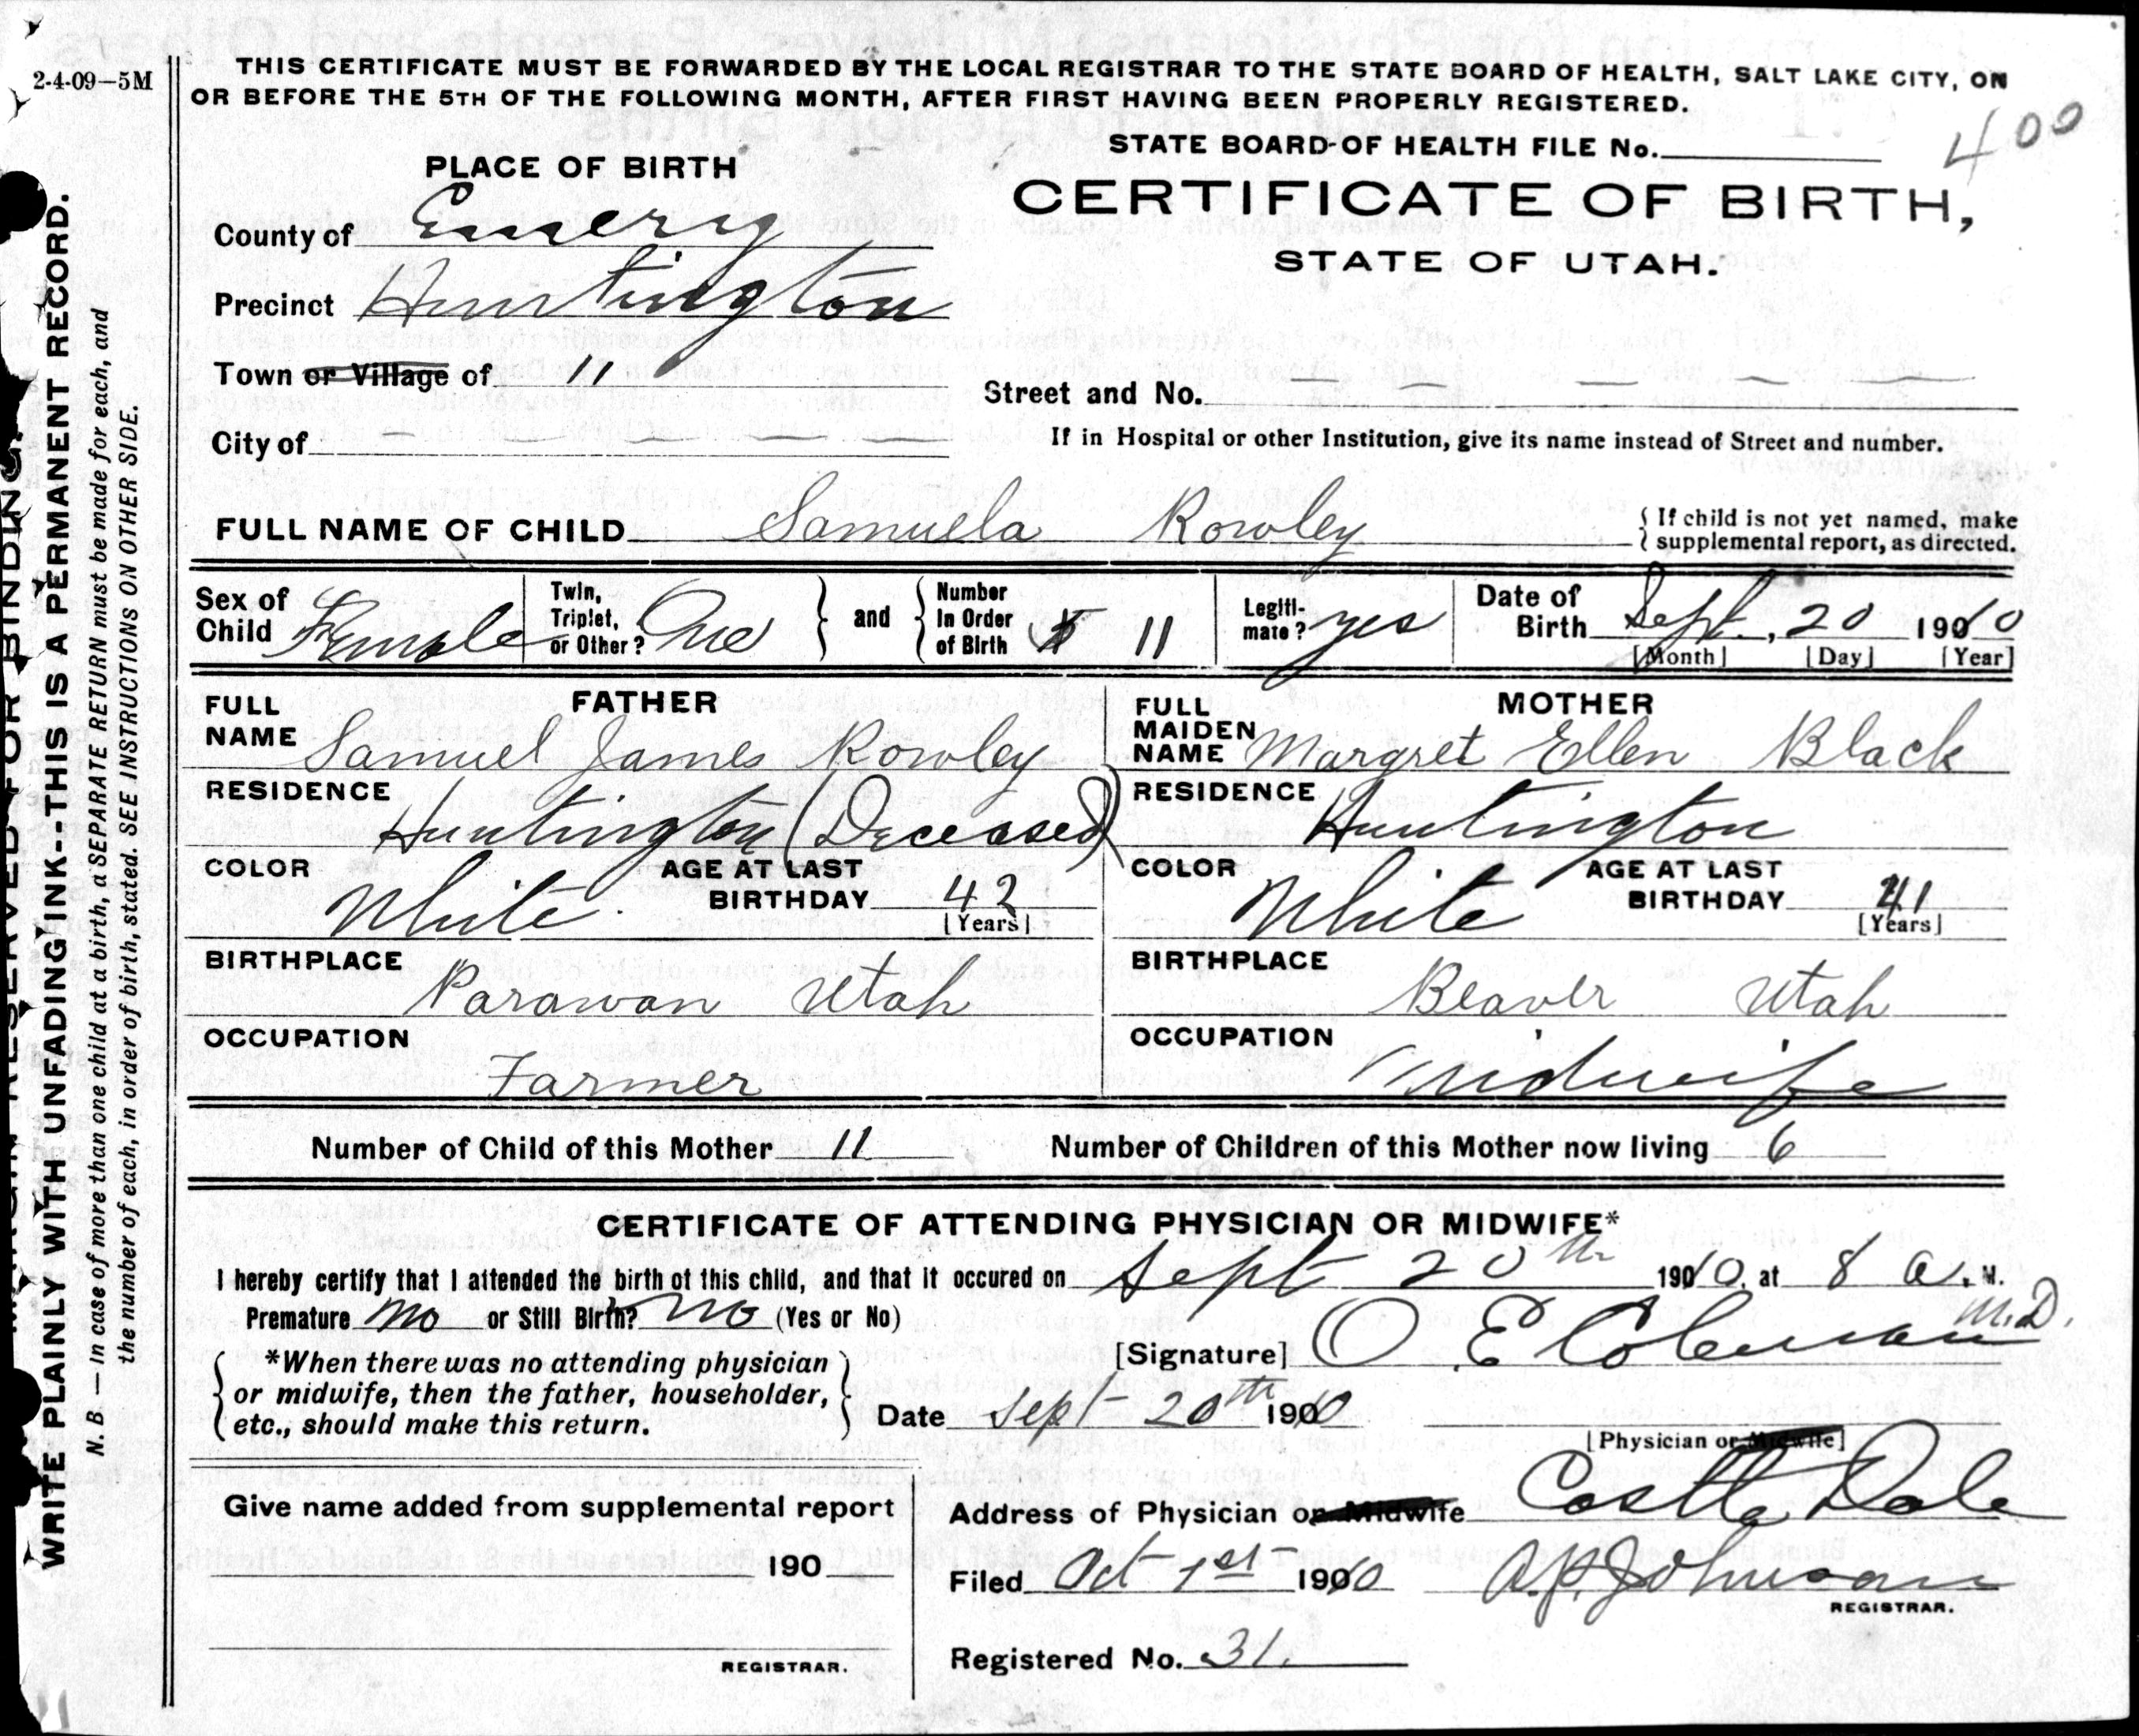 2-4-09—5M
THIS CERTIFICATE MUST BE FORWARDED BY THE LOCAL REGISTRAR TO THE STATE BOARD OF HEALTH, SALT LAKE CITY, ON
OR BEFORE THE 5TH OF THE FOLLOWING MONTH, AFTER FIRST HAVING BEEN PROPERLY REGISTERED.
STATE BOARD OF HEALTH FILE No. 400
PLACE OF BIRTH
CERTIFICATE OF BIRTH,
STATE OF UTAH.
County of Emery
Precinct Huntington
Town or Village of "
Street and No. — — — — — —
City of — — — — —
If in Hospital or other Institution, give its name instead of Street and number.
FULL NAME OF CHILD Samuela Rowley
{ If child is not yet named, make
supplemental report, as directed.
Sex of Child Female
Twin, Triplet, or Other? One } and { Number In Order of Birth 11
Legiti-mate? yes
Date of Birth Sept., 20 1910
[Month] [Day] [Year]
FATHER
FULL NAME Samuel James Rowley
RESIDENCE Huntington (Deceased)
COLOR White
AGE AT LAST BIRTHDAY 42 [Years]
BIRTHPLACE Parawan Utah
OCCUPATION Farmer
MOTHER
FULL MAIDEN NAME Margret Ellen Black
RESIDENCE Huntington
COLOR White
AGE AT LAST BIRTHDAY 41 [Years]
BIRTHPLACE Beaver Utah
OCCUPATION Midwife
Number of Child of this Mother 11 Number of Children of this Mother now living 6
CERTIFICATE OF ATTENDING PHYSICIAN OR MIDWIFE*
I hereby certify that I attended the birth of this child, and that it occured on Sept 20th 1910, at 8 a. M.
Premature no or Still Birth? no (Yes or No)
*When there was no attending physician
or midwife, then the father, householder,
etc., should make this return.
[Signature] O E Coleman M.D.
Date Sept 20th 1910
[Physician or Midwife]
Give name added from supplemental report
190
REGISTRAR.
Address of Physician or Midwife Castle Dale
Filed Oct 1st 1910 A.P. Johnson
REGISTRAR.
Registered No. 31.
MARGIN RESERVED FOR BINDING.
WRITE PLAINLY WITH UNFADING INK--THIS IS A PERMANENT RECORD.
N. B.—In case of more than one child at a birth, a SEPARATE RETURN must be made for each, and
the number of each, in order of birth, stated. SEE INSTRUCTIONS ON OTHER SIDE.